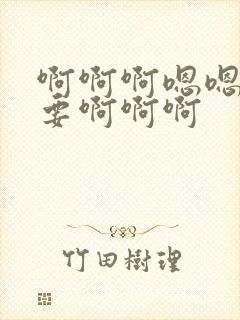 啊啊啊嗯嗯
要啊啊啊
竹田樹理